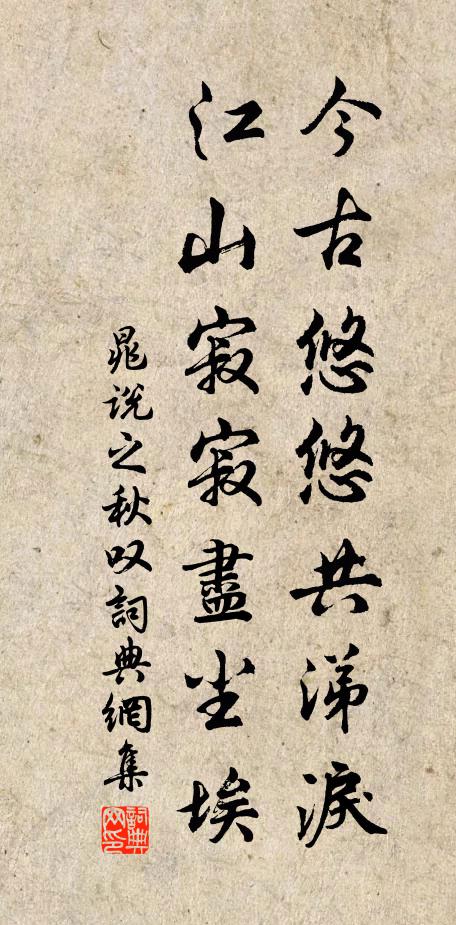 今古悠悠共涕淚
江山寂寂盡尘埃
晁説之秋叹詞典網集
詞典网印